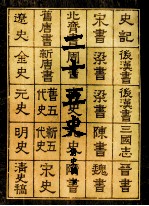 史記
後漢書
三國志
晉書
宋書
梁書
陳書
魏書
北齊書
周書
二十五史
舊唐書
新唐書
舊五代史
新五代史
宋史
遼史
金史
元史
明史
清史稿